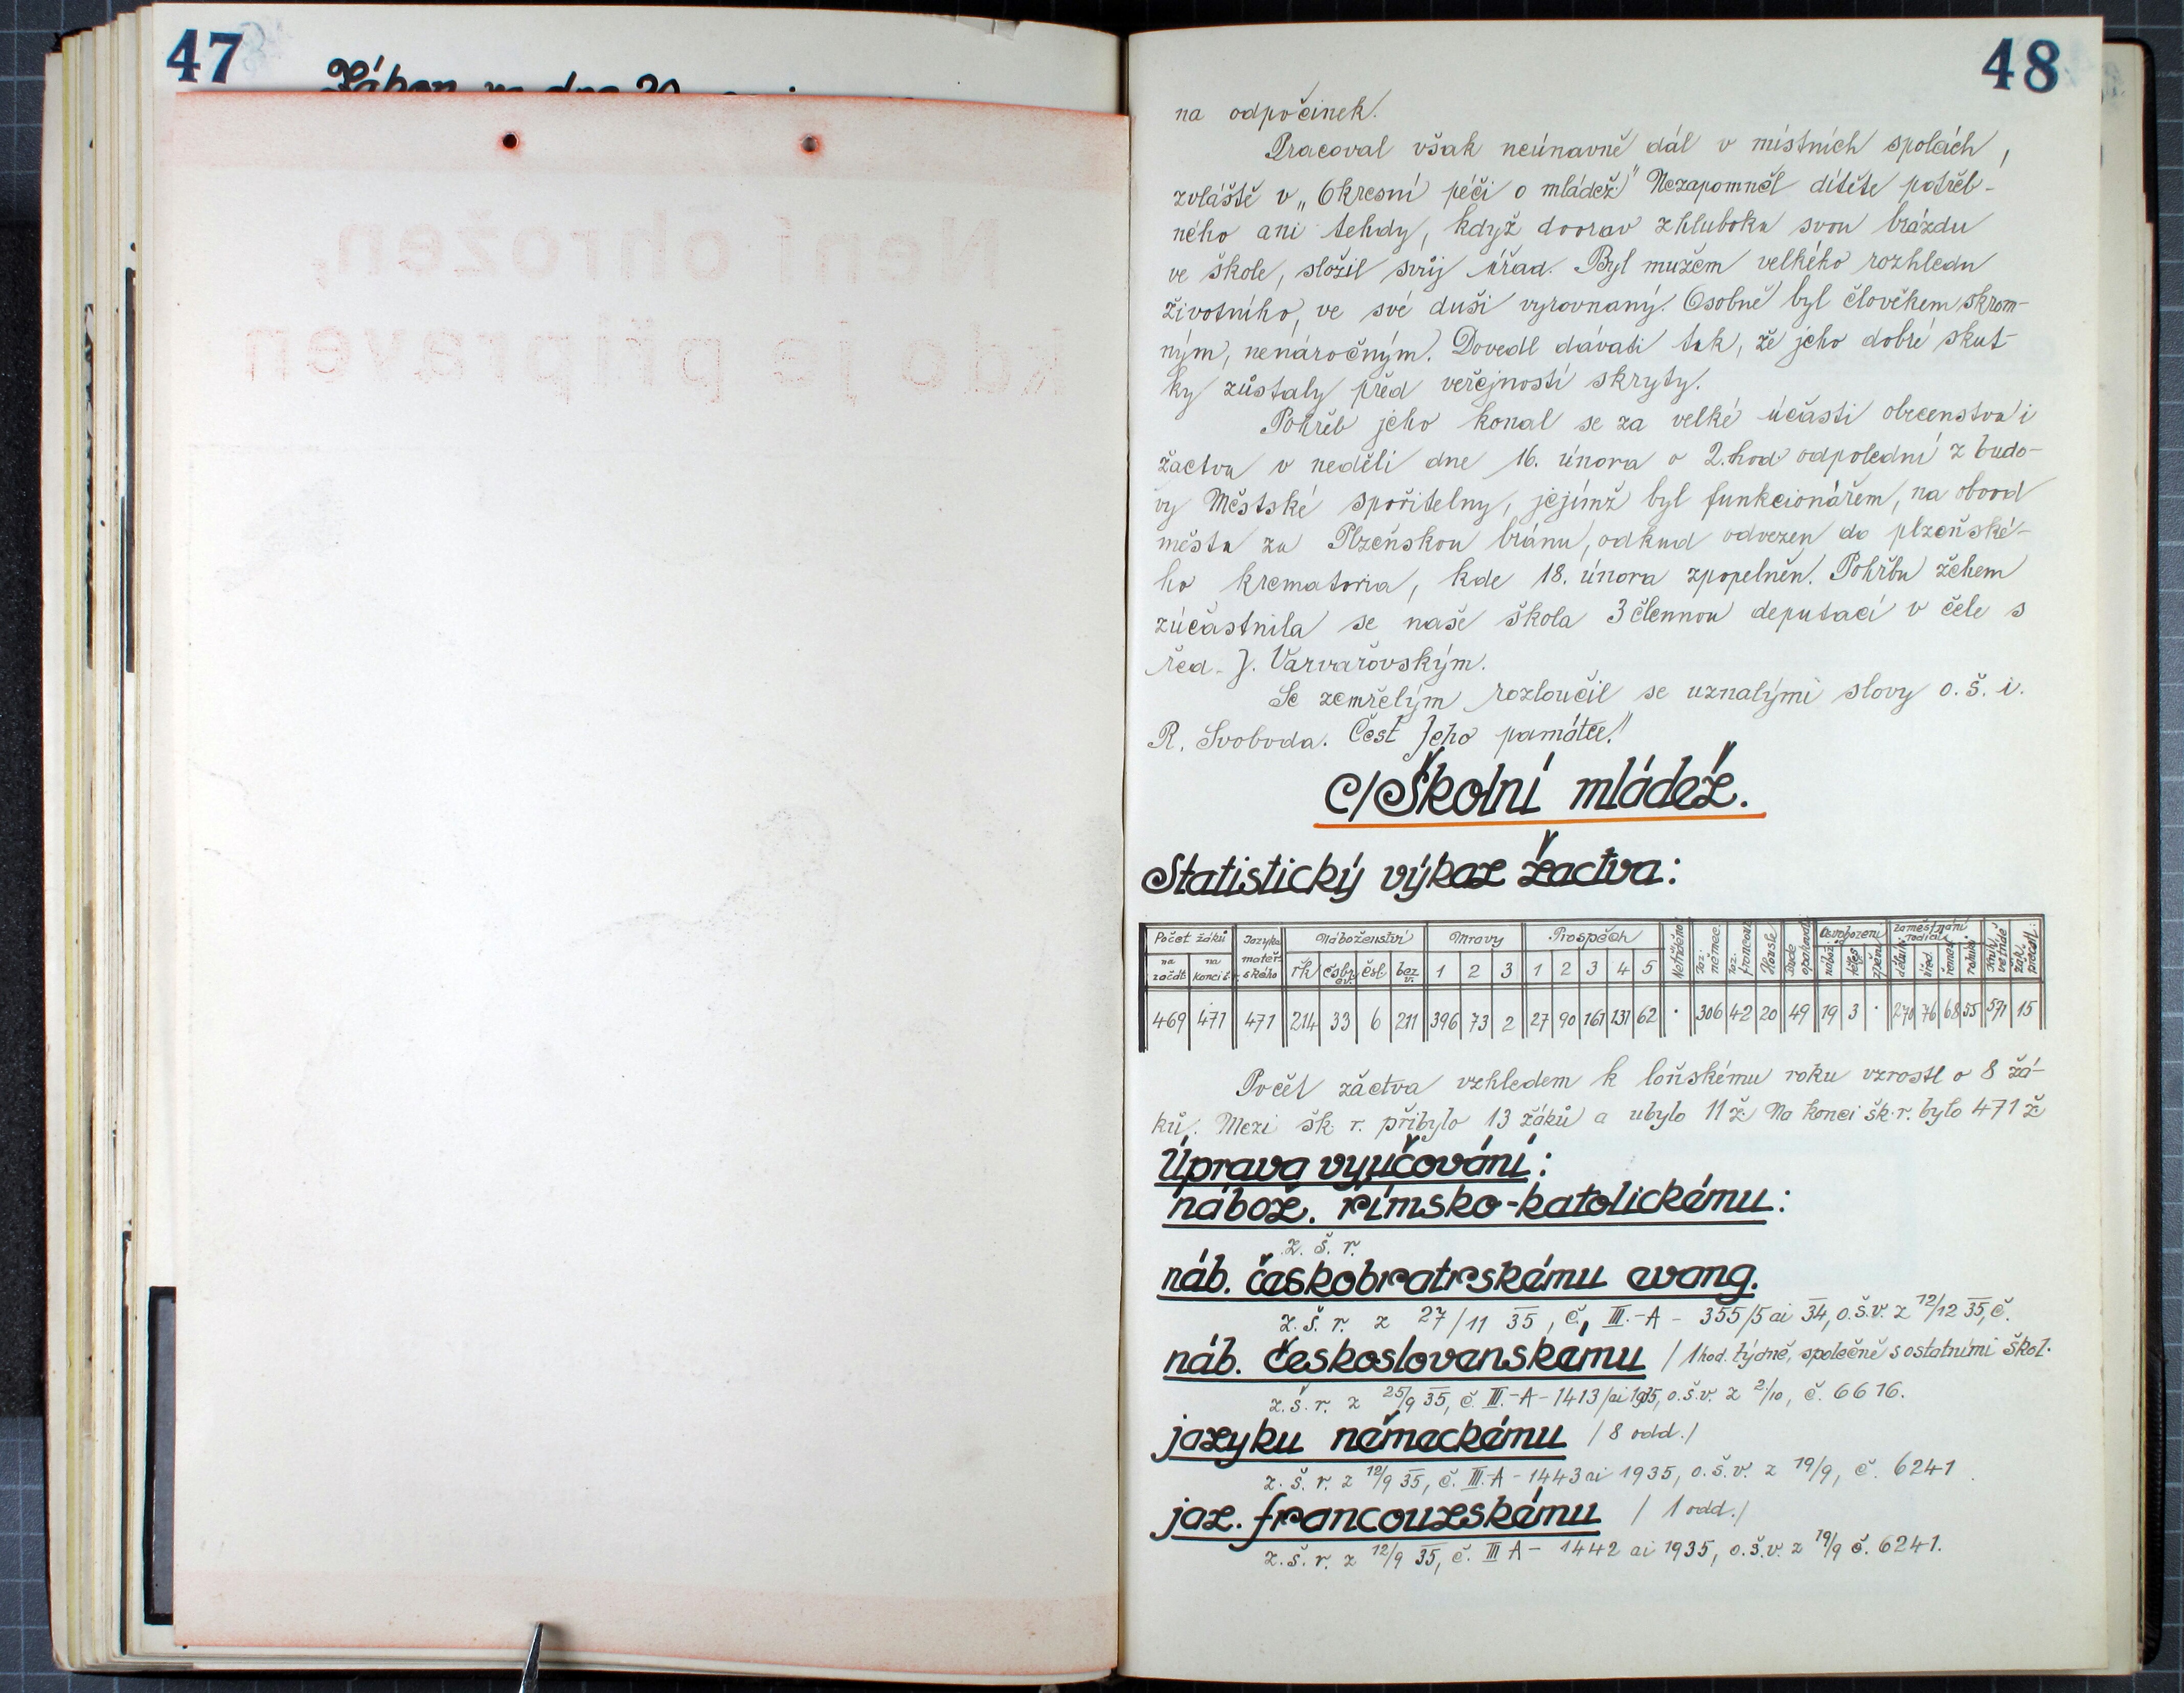 47
Zákon ze dne
Není ohrožen,
kdo je připraven
48
na odpočinek.
Pracoval však neúnavně dál v místních spolcích,
zvláště v „Okresní péči o mládež." Nezapomněl dítěte potřeb-
ného ani tehdy, když dooráv zhluboka svou brázdu
ve škole, složil svůj úřad. Byl mužem velkého rozhledu
životního, ve své duši vyrovnaný. Osobně byl člověkem skrom-
ným, nenáročným. Dovedl dávati tak, že jeho dobré skut-
ky zůstaly před veřejností skryty.
Pohřeb jeho konal se za velké účasti obecenstva i
žactva v neděli dne 16. února o 2. hod. odpolední z budo-
vy Městské spořitelny, jejímž byl funkcionářem, na obvod
města za Plzeňskou bránu, odkud odvezen do plzeňské-
ho krematoria, kde 18. února zpopelněn. Pohřbu žehem
zúčastnila se naše škola 3 člennou deputací v čele s
řed. J. Varvařovským.
Se zemřelým rozloučil se uznalými slovy o. š. i.
R. Svoboda. Čest Jeho památce!
C/Školní mládež.
Statistický výkaz žactva:
Počet žáků Jazyka mateř- ského Náboženství Mravy Prospěch Netříděno Jaz. němec. Jaz. francouz. Housle Bude opakovati Osvobozeni Zaměstnání rodičů
na začát. na konci š. řk čsbr. ev. čsl. bez v. 1 2 3 1 2 3 4 5 nábož. těles. zpěvu dělníci úřed. řemes. rolníci
469 471 471 214 33 6 211 396 73 2 27 90 161 131 62 · 306 42 20 49 19 3 · 270 76 68 55 571 15
Počet žactva vzhledem k loňskému roku vzrostl o 8 žá-
ků. Mezi šk. r. přibylo 13 žáků a ubylo 11 ž. Na konci šk. r. bylo 471 ž.
Úprava vyučování:
nábož. římsko-katolickému:
z. š. r.
náb. českobratrskému evang.
z. š. r. z 27/11 35, č. III.-A - 355/5 ai 34, o.š.v. z 12/12 35, č.
náb. československému / 1 hod. týdně, společně s ostatními škol.
z. š. r. z 25/9 35, č. III.-A - 1413/ai 1935, o.š.v. z 2/10, č. 6676.
jazyku německému / 8 odd./
z. š. r. z 12/9 35, č. III.-A - 1443 ai 1935, o.š.v. z 19/9, č. 6241
jaz. francouzskému / 1 odd./
z. š. r. z 12/9 35, č. III A - 1442 ai 1935, o.š.v. z 19/9 č. 6241.